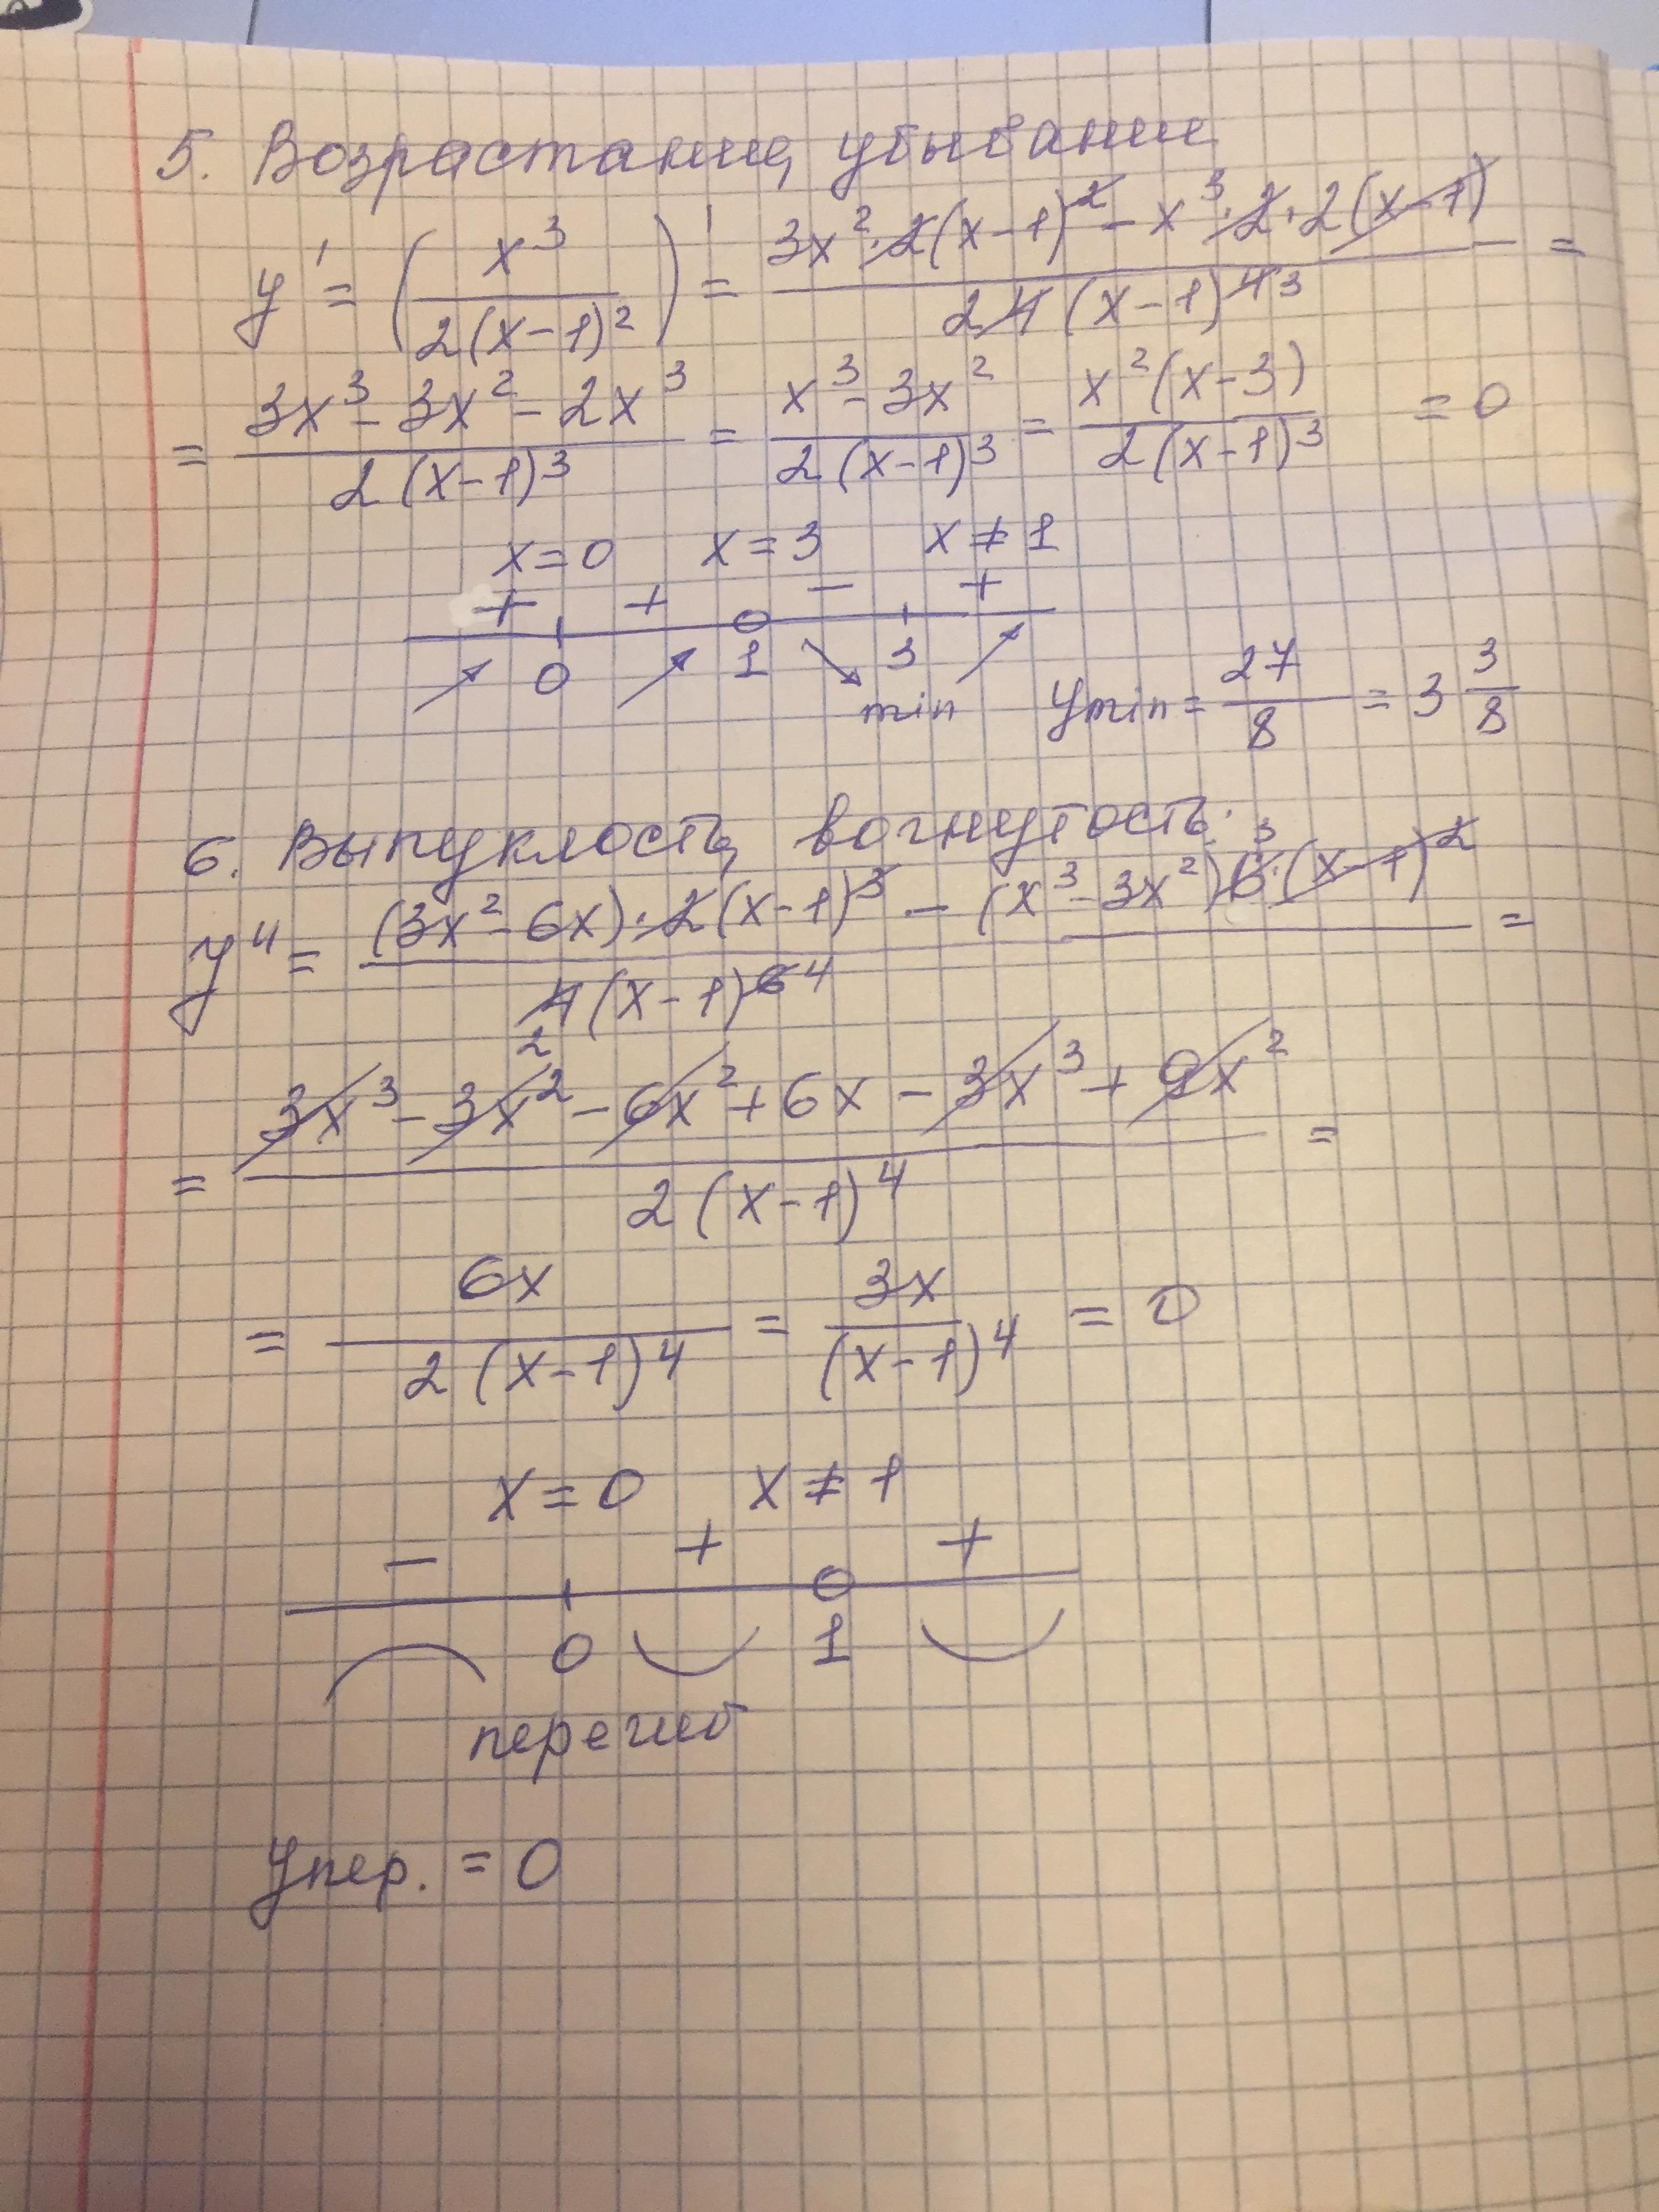 5. Возрастание, убывание
y' = (x³/2(x-1)²)' = (3x²·2(x-1)² - x³·2·2(x-1))/(2 4(x-1)⁴ ³) =
= (3x³ - 3x² - 2x³)/(2(x-1)³) = (x³ - 3x²)/(2(x-1)³) = x²(x-3)/(2(x-1)³) = 0
x = 0 x = 3 x ≠ 1
+ + - +
0 1 3
min ymin = 27/8 = 3 3/8
6. Выпуклость, вогнутость:
y" = ((3x² - 6x)·2(x-1)³ - (x³ - 3x²) 6 ³·(x-1)²)/(4 2(x-1)⁶ ⁴) =
= (3x³ - 3x² - 6x² + 6x - 3x³ + 9x²)/(2(x-1)⁴) =
= 6x/(2(x-1)⁴) = 3x/(x-1)⁴ = 0
x = 0 x ≠ 1
- + +
0 1
перегиб
yпер. = 0